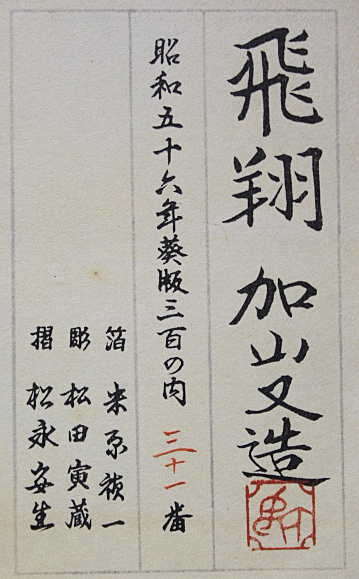 飛翔 加山又造
昭和五十六年葵版三百の内 三十一番
箔 米原禎一
彫 松田寅蔵
摺 松永安生